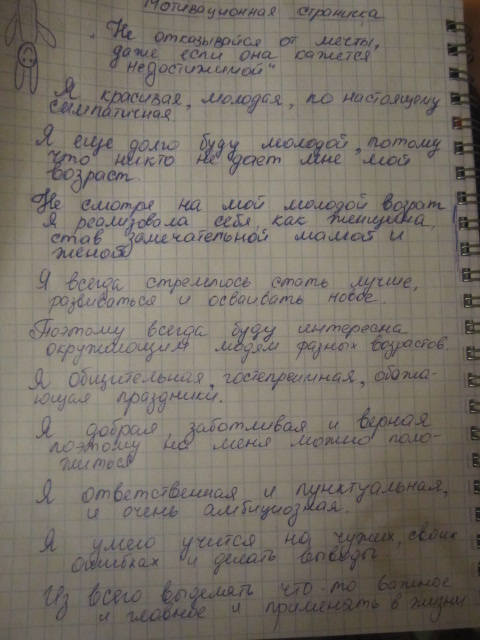 Мотивационная страничка
„Не отказывайся от мечты,
даже если она кажется
недостижимой"
Я красивая, молодая, по настоящему
симпатичная
Я еще долго буду молодой, потому
что никто не дает мне мой
возраст.
Не смотря на мой молодой возрат
я реализовала себя, как женщина,
став замечательной мамой и
женой
Я всегда стремлюсь стать лучше,
развиваться и осваивать новое.
Поэтому всегда буду интересна
окружающим людям разных возрастов
Я общительная, гостеприимная, обожа-
ющая праздники.
Я добрая, заботливая и верная
поэтому на меня можно поло-
житься
Я ответственная и пунктуальная,
и очень амбициозная.
Я умею учится на чужих, своих
ошибках и делать выводы.
Из всего выделять что-то важное
и главное и применять в жизни